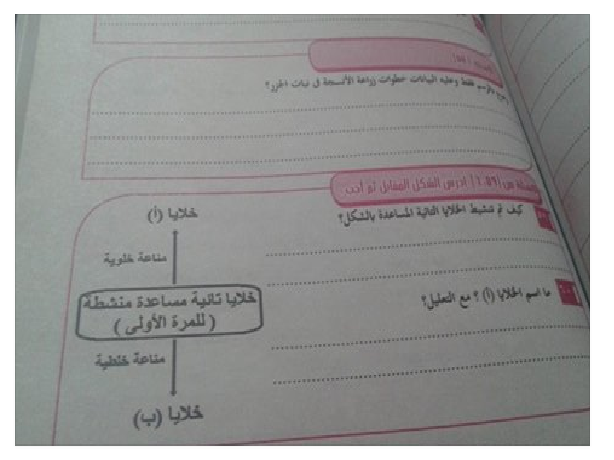 وضح بالرسم فقط وعليه البيانات خطوات زراعة الأنسجة في نبات الجزر؟
ادرس الشكل المقابل ثم أجب:
كيف تم تنشيط الخلايا التائية المساعدة بالشكل؟
ما اسم الخلايا (أ) ؟ مع التعليل؟
خلايا (أ)
مناعة خلوية
خلايا تائية مساعدة منشطة
( للمرة الأولى )
مناعة خلطية
خلايا (ب)